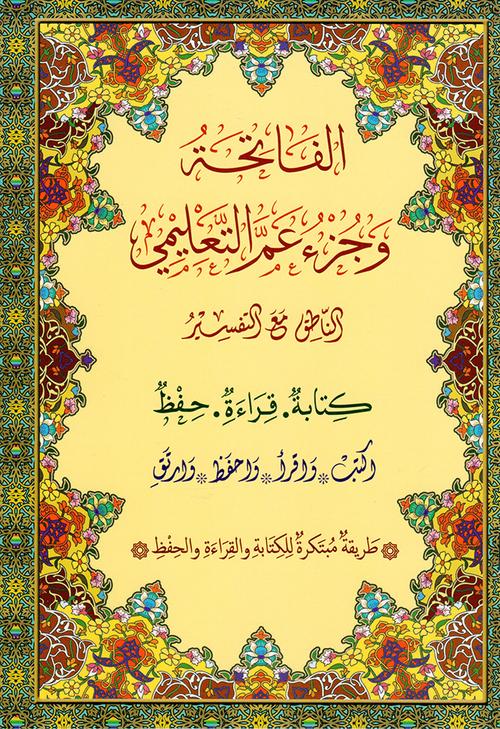 الفَاتِحَةُ
وَجُزْءُ عَمَّ التَّعْلِيمِي
النَّاطِق مَعَ التَفسِيْرُ
كِتابةٌ. قِرَاءَةٌ. حِفْظٌ
اكتبْ * وَاقرأ * وَاحفَظ * وَارتَقِ
طَريقةٌ مُبتَكرةٌ لِلكِتَابَةِ والقِرَاءَةِ والحِفْظِ